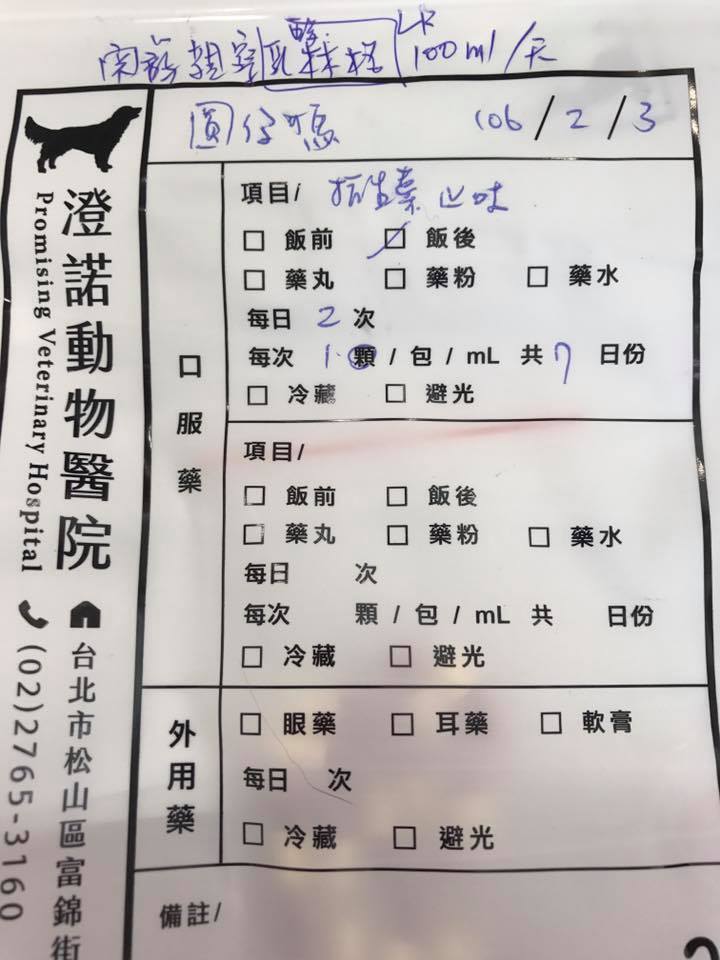 乳酸林格 LR 100ml/天
圓仔媽 106/2/3
澄諾動物醫院
Promising Veterinary Hospital
台北市松山區富錦街
(02)2765-3160
口服藥
項目/ 抗生素 止吐
飯前 飯後
藥丸 藥粉 藥水
每日 2 次
每次 1 顆 / 包 / mL 共 7 日份
冷藏 避光
項目/
飯前 飯後
藥丸 藥粉 藥水
每日 次
每次 顆 / 包 / mL 共 日份
冷藏 避光
外用藥
眼藥 耳藥 軟膏
每日 次
冷藏 避光
備註/